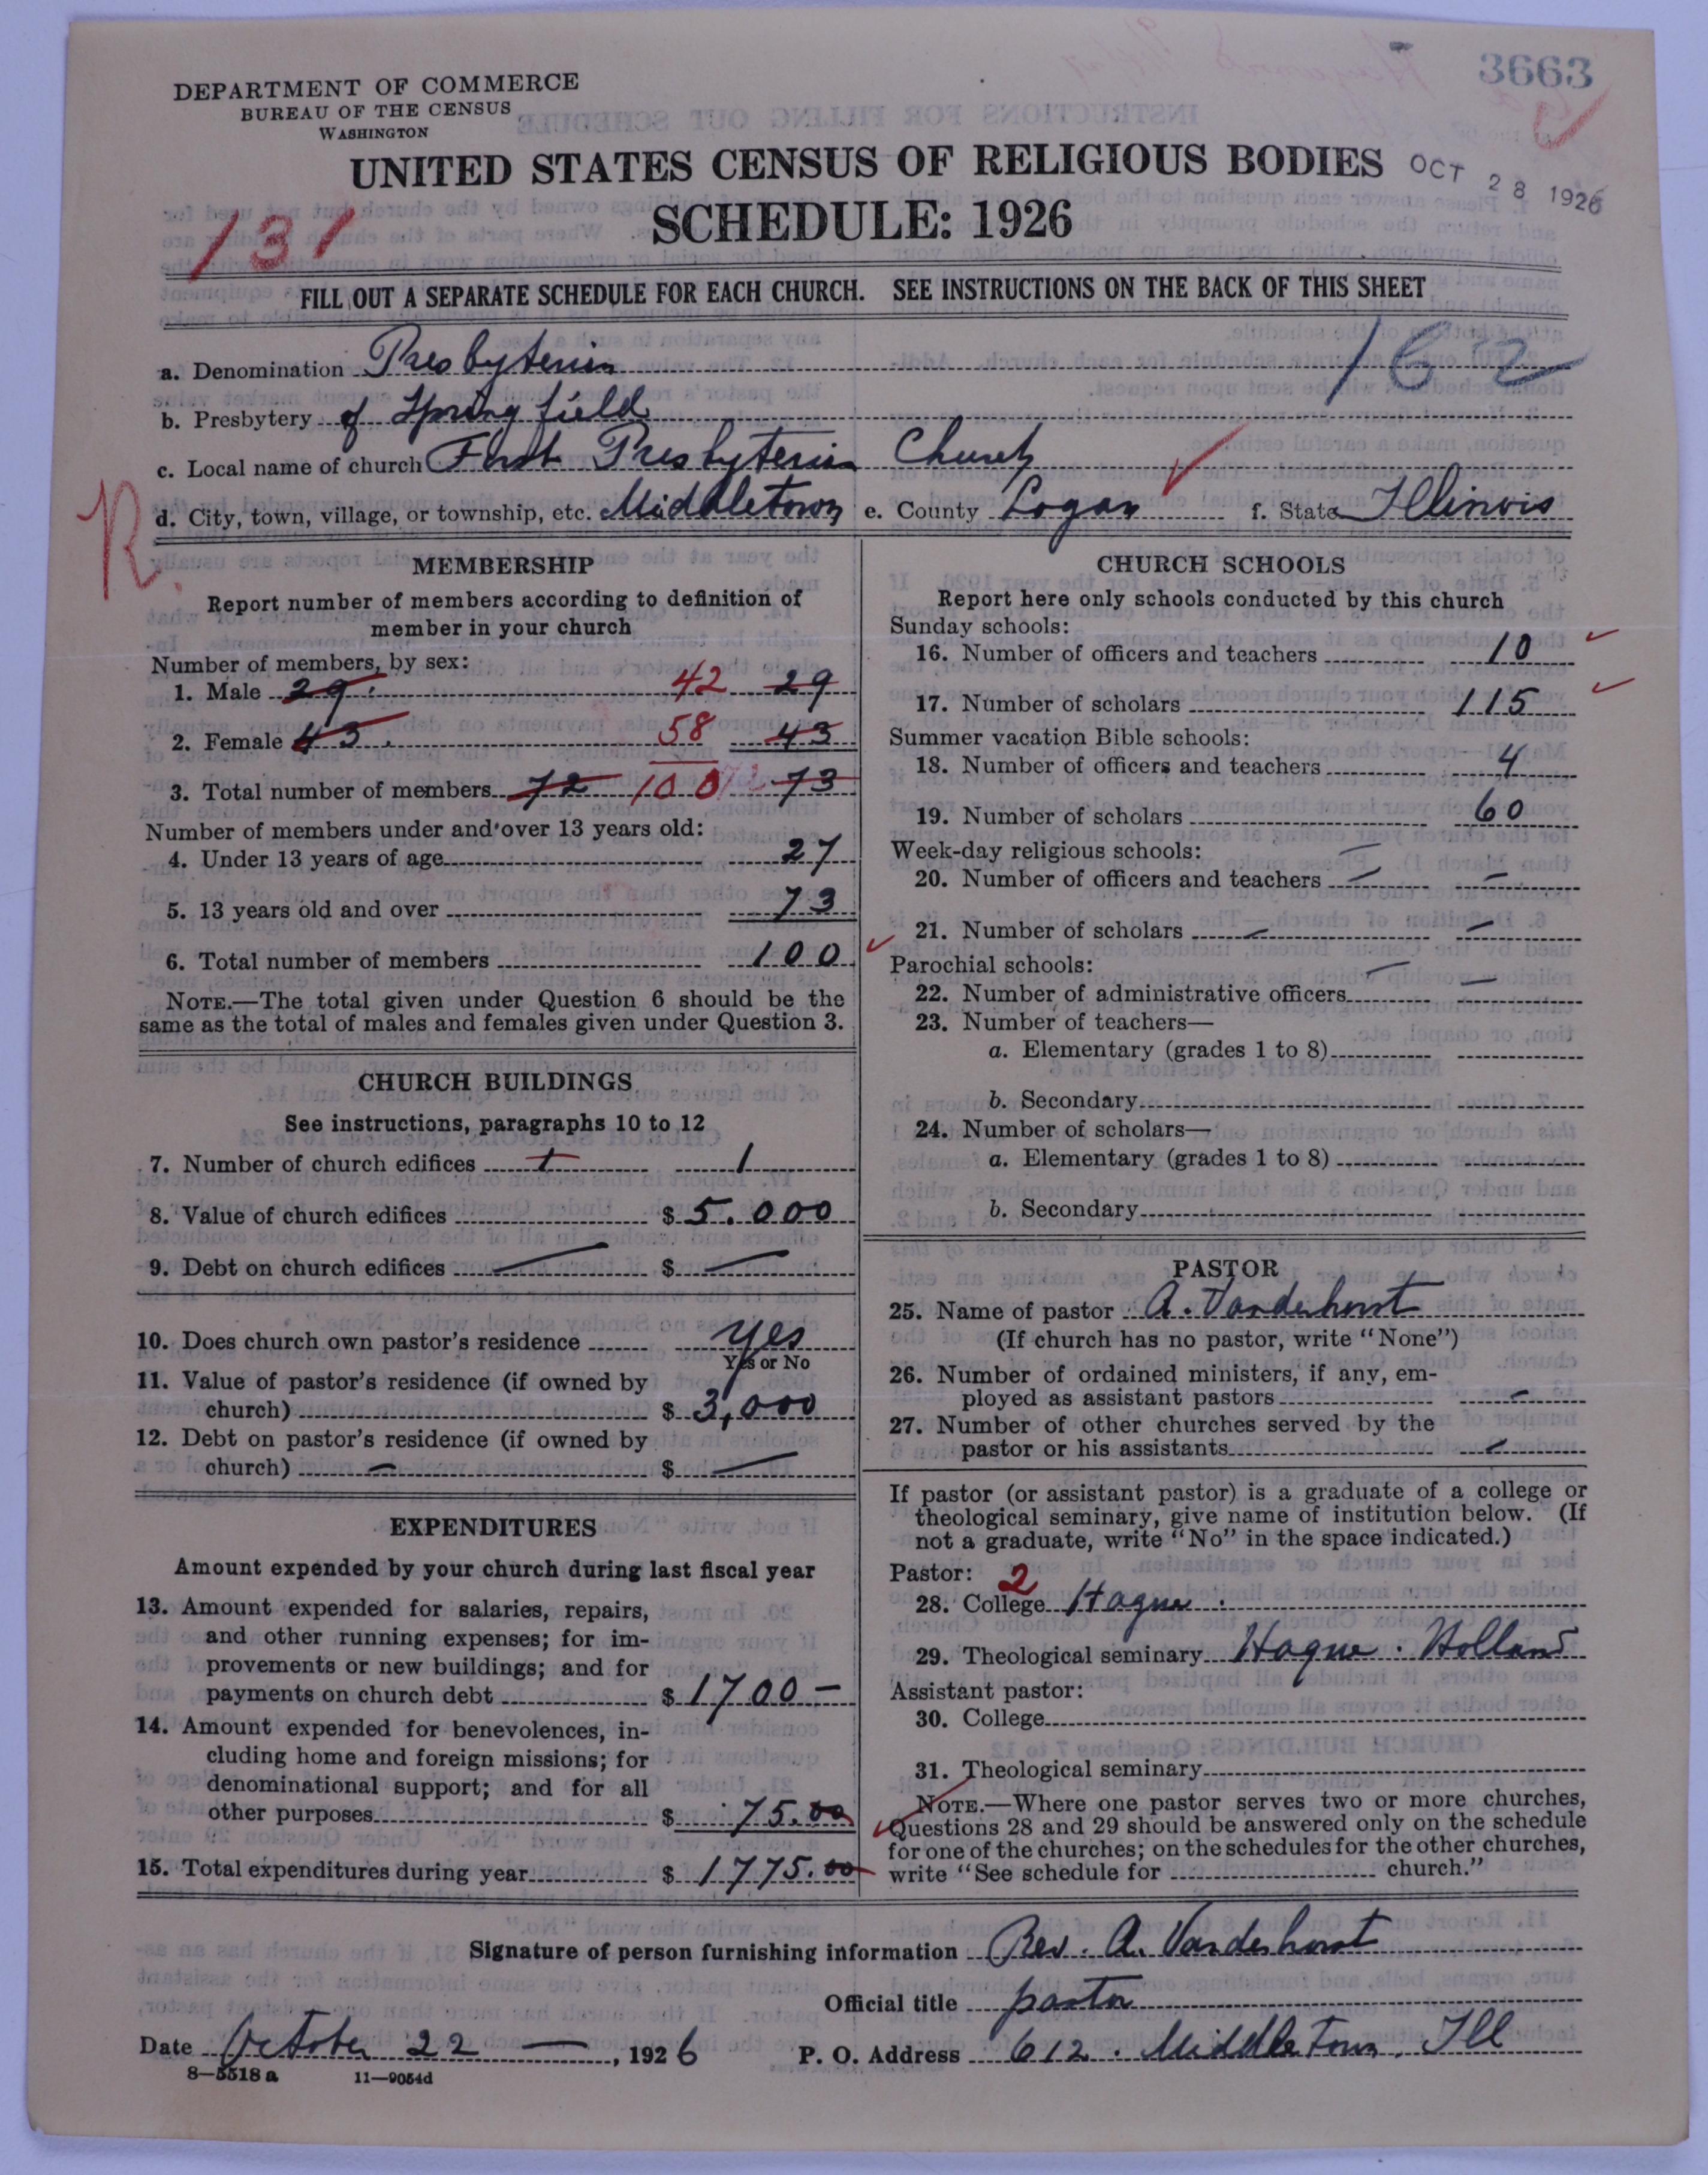 3663
DEPARTMENT OF COMMERCE
BUREAU OF THE CENSUS
WASHINGTON
UNITED STATES CENSUS OF RELIGIOUS BODIES
OCT 28 1926
SCHEDULE: 1926
131
FILL OUT A SEPARATE SCHEDULE FOR EACH CHURCH. SEE INSTRUCTIONS ON THE BACK OF THIS SHEET
162
a. Denomination Presbyterian
b. Presbytery of Springfield
c. Local name of church First Presbyterian Church
d. City, town, village, or township, etc. Middletown e. County Logan f. State Illinois
R.
MEMBERSHIP
Report number of members according to definition of
member in your church
Number of members, by sex:
1. Male 29. 42 29
2. Female 43. 58 43
3. Total number of members 72 100 73
Number of members under and over 13 years old:
4. Under 13 years of age 27
5. 13 years old and over 73
6. Total number of members 100
NOTE.—The total given under Question 6 should be the
same as the total of males and females given under Question 3.
CHURCH BUILDINGS
See instructions, paragraphs 10 to 12
7. Number of church edifices 1 1
8. Value of church edifices $ 5.000
9. Debt on church edifices — $ —
10. Does church own pastor's residence yes
Yes or No
11. Value of pastor's residence (if owned by
church) $ 3,000
12. Debt on pastor's residence (if owned by
church) — $ —
EXPENDITURES
Amount expended by your church during last fiscal year
13. Amount expended for salaries, repairs,
and other running expenses; for im-
provements or new buildings; and for
payments on church debt $ 1700 —
14. Amount expended for benevolences, in-
cluding home and foreign missions; for
denominational support; and for all
other purposes $ 75.00
15. Total expenditures during year $ 1775.00
CHURCH SCHOOLS
Report here only schools conducted by this church
Sunday schools:
16. Number of officers and teachers 10
17. Number of scholars 115
Summer vacation Bible schools:
18. Number of officers and teachers 4
19. Number of scholars 60
Week-day religious schools: —
20. Number of officers and teachers — —
21. Number of scholars — —
Parochial schools: —
22. Number of administrative officers —
23. Number of teachers—
a. Elementary (grades 1 to 8)
b. Secondary
24. Number of scholars—
a. Elementary (grades 1 to 8)
b. Secondary
PASTOR
25. Name of pastor A. Vanderhorst
(If church has no pastor, write "None")
26. Number of ordained ministers, if any, em-
ployed as assistant pastors —
27. Number of other churches served by the
pastor or his assistants —
If pastor (or assistant pastor) is a graduate of a college or
theological seminary, give name of institution below. (If
not a graduate, write "No" in the space indicated.)
Pastor: 2
28. College Hague.
29. Theological seminary Hague. Holland
Assistant pastor:
30. College
31. Theological seminary
NOTE.—Where one pastor serves two or more churches,
Questions 28 and 29 should be answered only on the schedule
for one of the churches; on the schedules for the other churches,
write "See schedule for church."
Signature of person furnishing information Rev. A. Vanderhorst
Official title pastor
Date October 22 —, 1926 P. O. Address 612. Middletown. Ill
8—5518 a 11—9054d